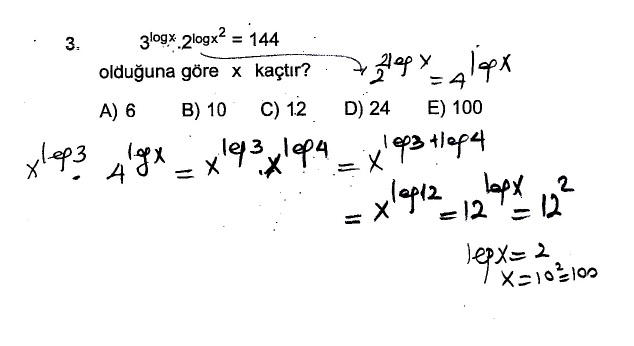 3. 3^logx.2^logx² = 144
olduğuna göre x kaçtır? → 2^2logx = 4^logx
A) 6 B) 10 C) 12 D) 24 E) 100
x^log3 . 4^logx = x^log3 . x^log4 = x^log3+log4
= x^log12 = 12^logx = 12²
logx = 2
x = 10² = 100